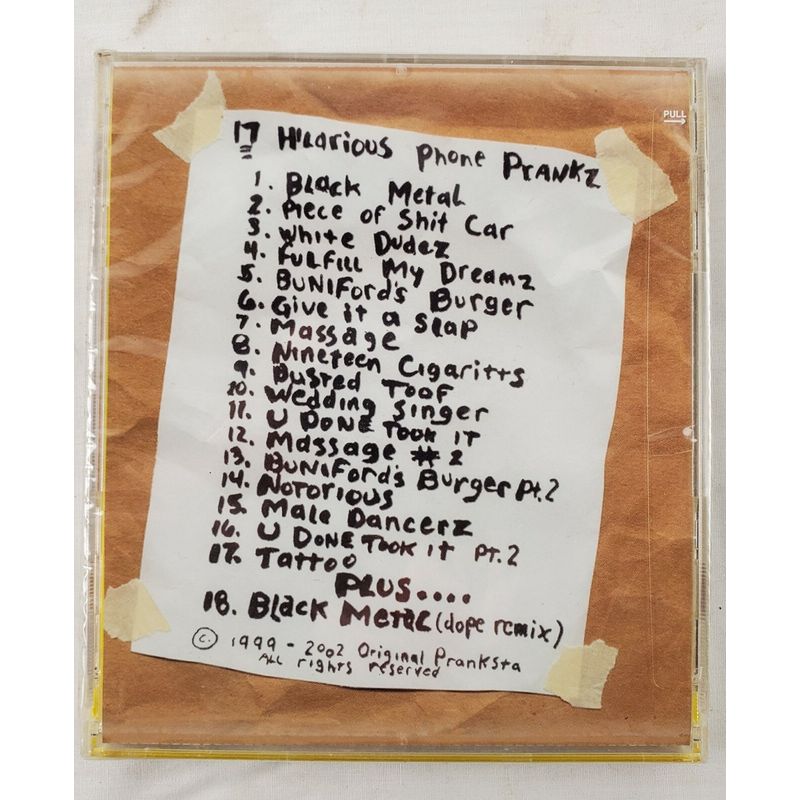 PULL
17 Hilarious Phone Prankz
1. Black Metal
2. Piece of Shit Car
3. White Dudez
4. Fulfill My Dreamz
5. Buniford's Burger
6. Give it a Slap
7. Massage
8. Nineteen Cigaritts
9. Busted Toof
10. Wedding Singer
11. U Done Took It
12. Massage # 2
13. Buniford's Burger Pt. 2
14. Notorious
15. Male Dancerz
16. U Done Took It Pt. 2
17. Tattoo
PLUS....
18. Black Metal (dope remix)
©. 1999 - 2002 Original Pranksta
All rights reserved